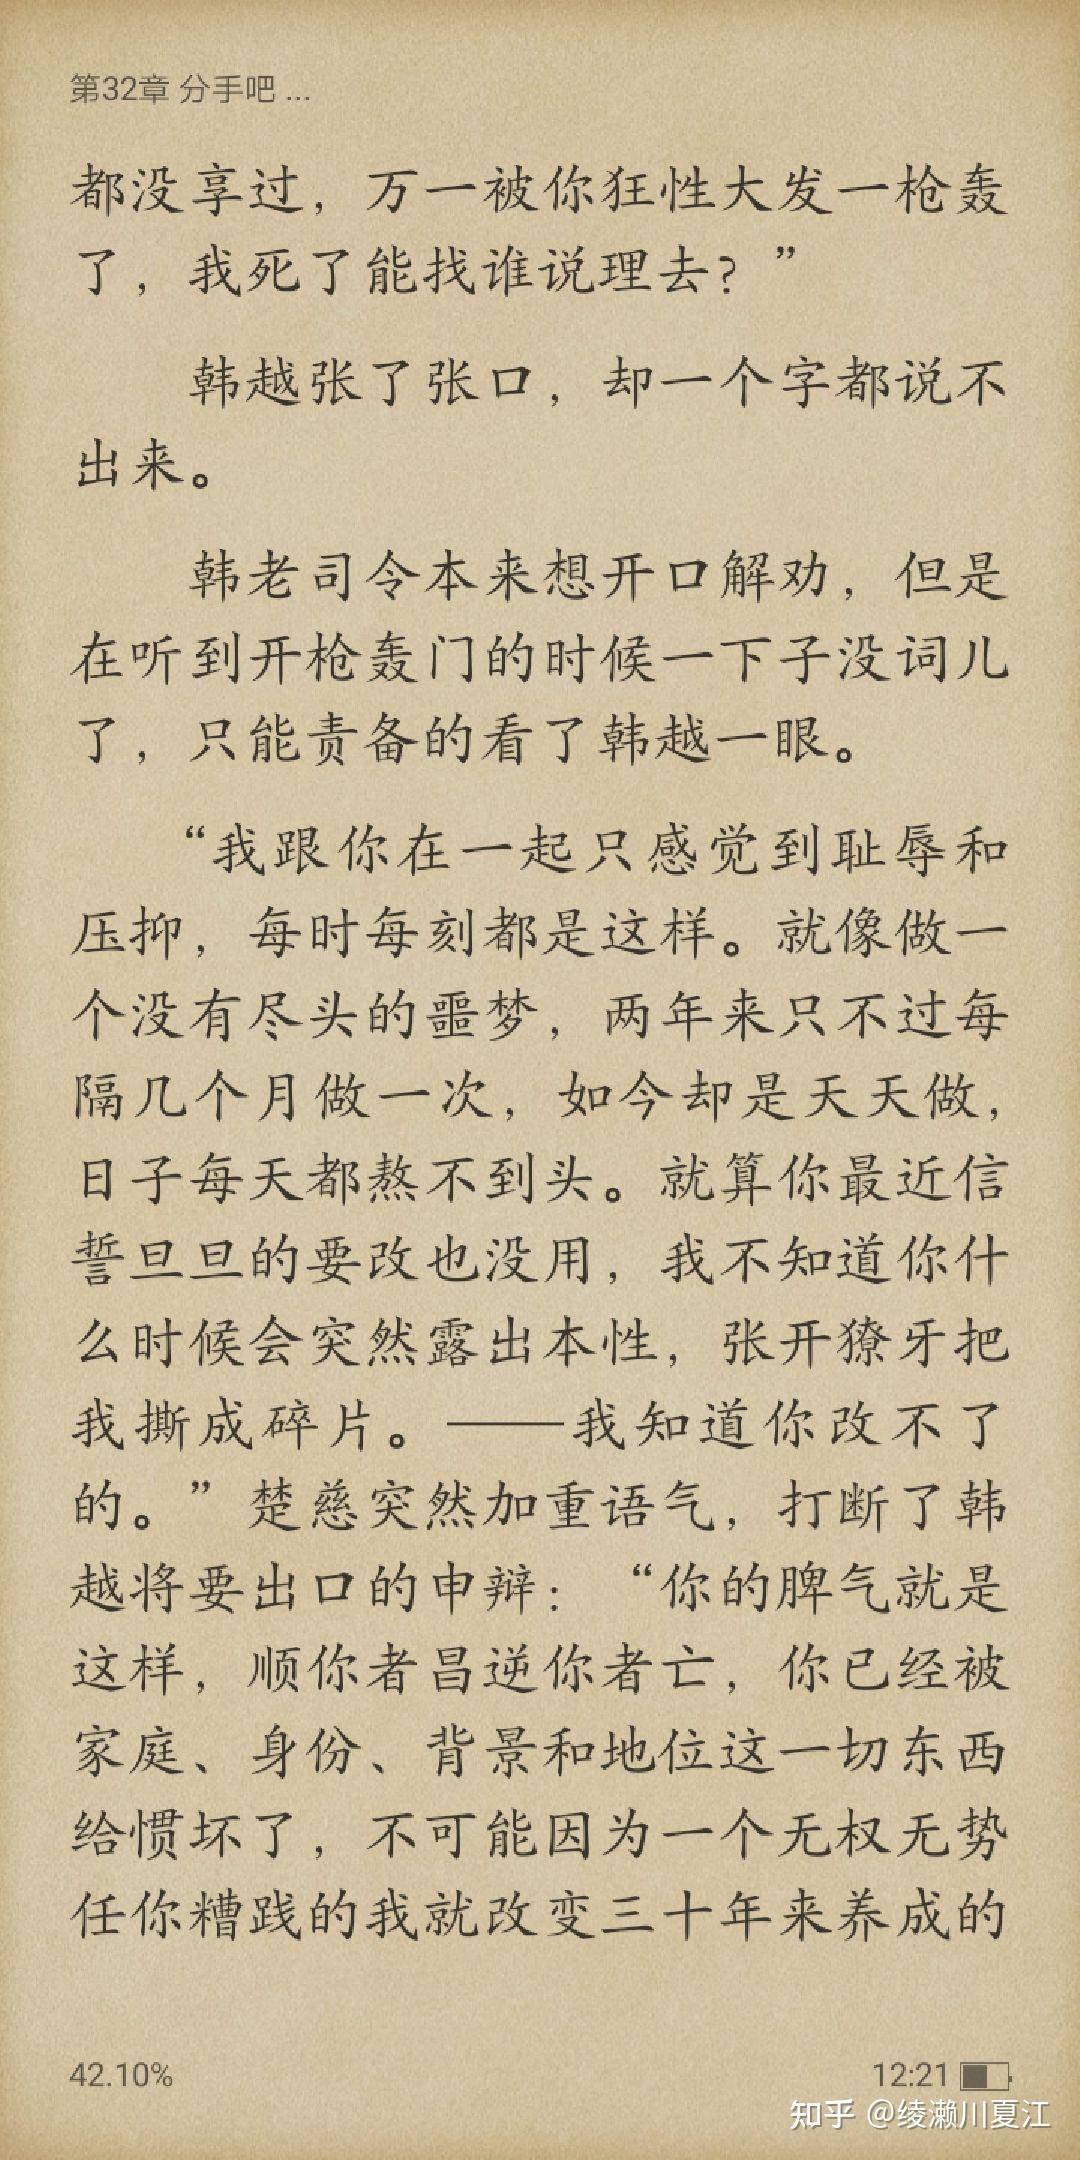 第32章 分手吧 ...
都没享过，万一被你狂性大发一枪轰
了，我死了能找谁说理去？”
韩越张了张口，却一个字都说不
出来。
韩老司令本来想开口解劝，但是
在听到开枪轰门的时候一下子没词儿
了，只能责备的看了韩越一眼。
“我跟你在一起只感觉到耻辱和
压抑，每时每刻都是这样。就像做一
个没有尽头的噩梦，两年来只不过每
隔几个月做一次，如今却是天天做，
日子每天都熬不到头。就算你最近信
誓旦旦的要改也没用，我不知道你什
么时候会突然露出本性，张开獠牙把
我撕成碎片。——我知道你改不了
的。”楚慈突然加重语气，打断了韩
越将要出口的申辩：“你的脾气就是
这样，顺你者昌逆你者亡，你已经被
家庭、身份、背景和地位这一切东西
给惯坏了，不可能因为一个无权无势
任你糟践的我就改变三十年来养成的
42.10%
12:21
知乎 @绫濑川夏江